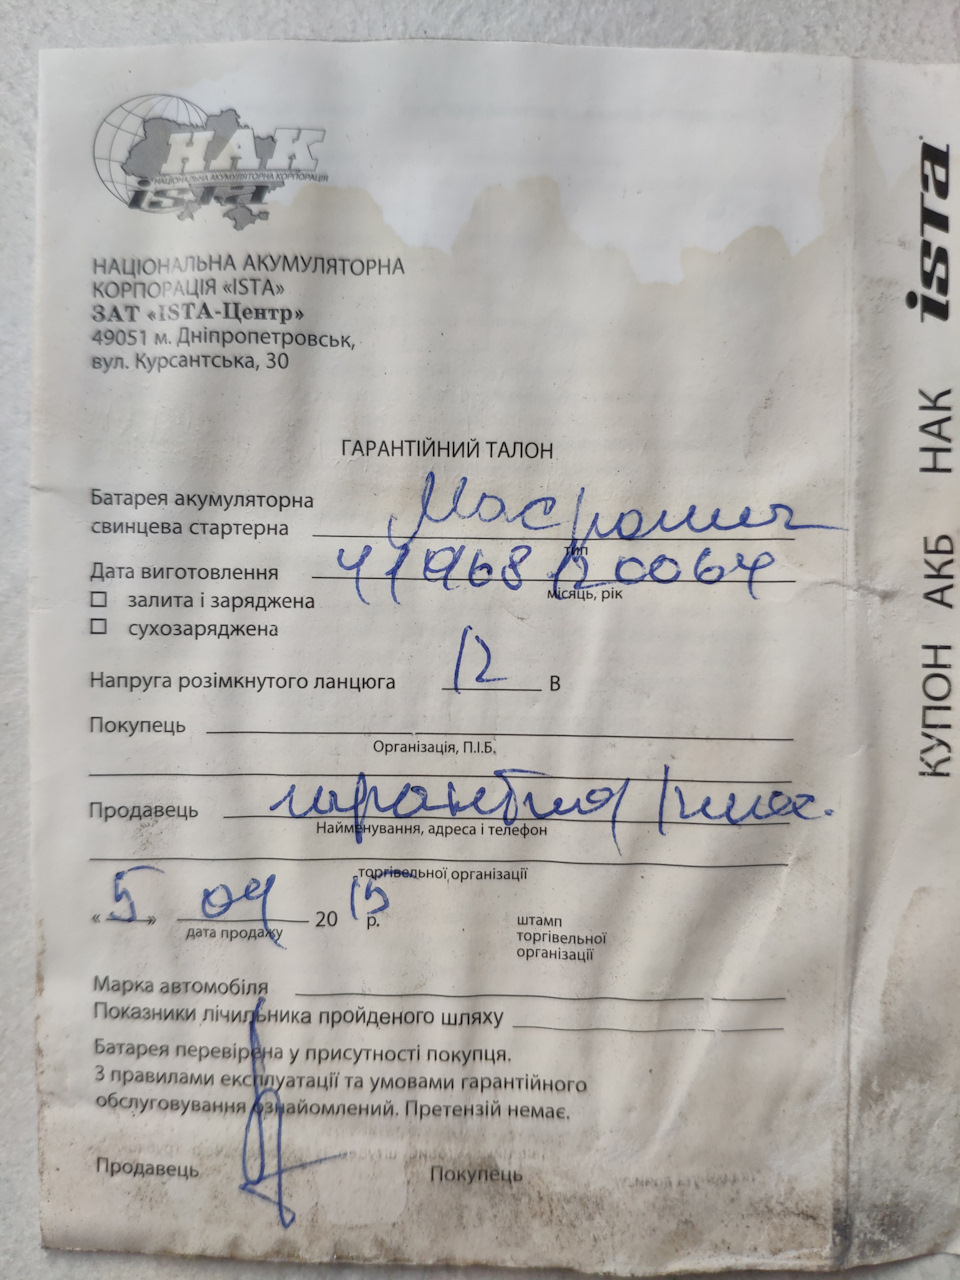 НАК
НАЦІОНАЛЬНА АКУМУЛЯТОРНА КОРПОРАЦІЯ
ista
НАЦІОНАЛЬНА АКУМУЛЯТОРНА
КОРПОРАЦІЯ «ISTA»
ЗАТ «ISTA-Центр»
49051 м. Дніпропетровськ,
вул. Курсантська, 30
ГАРАНТІЙНИЙ ТАЛОН
Батарея акумуляторна
свинцева стартерна
тип
Дата виготовлення 41968 120064
місяць, рік
☐ залита і заряджена
☐ сухозаряджена
Напруга розімкнутого ланцюга 12 В
Покупець
Організація, П.І.Б.
Продавець
Найменування, адреса і телефон
торгівельної організації
« 5 » 04 20 15 р.
дата продажу
штамп
торгівельної
організації
Марка автомобіля
Показники лічильника пройденого шляху
Батарея перевірена у присутності покупця.
З правилами експлуатації та умовами гарантійного
обслуговування ознайомлений. Претензій немає.
Продавець Покупець
КУПОН АКБ НАК ista